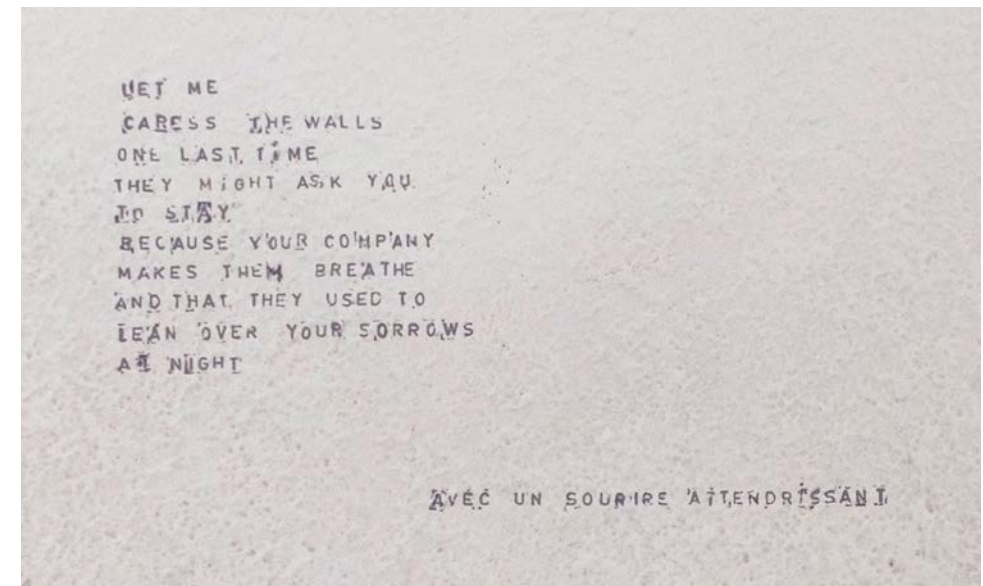 LET ME
CARESS THE WALLS
ONE LAST TIME
THEY MIGHT ASK YOU
TO STAY
BECAUSE YOUR COMPANY
MAKES THEM BREATHE
AND THAT THEY USED TO
LEAN OVER YOUR SORROWS
AT NIGHT
AVEC UN SOURIRE ATTENDRISSANT